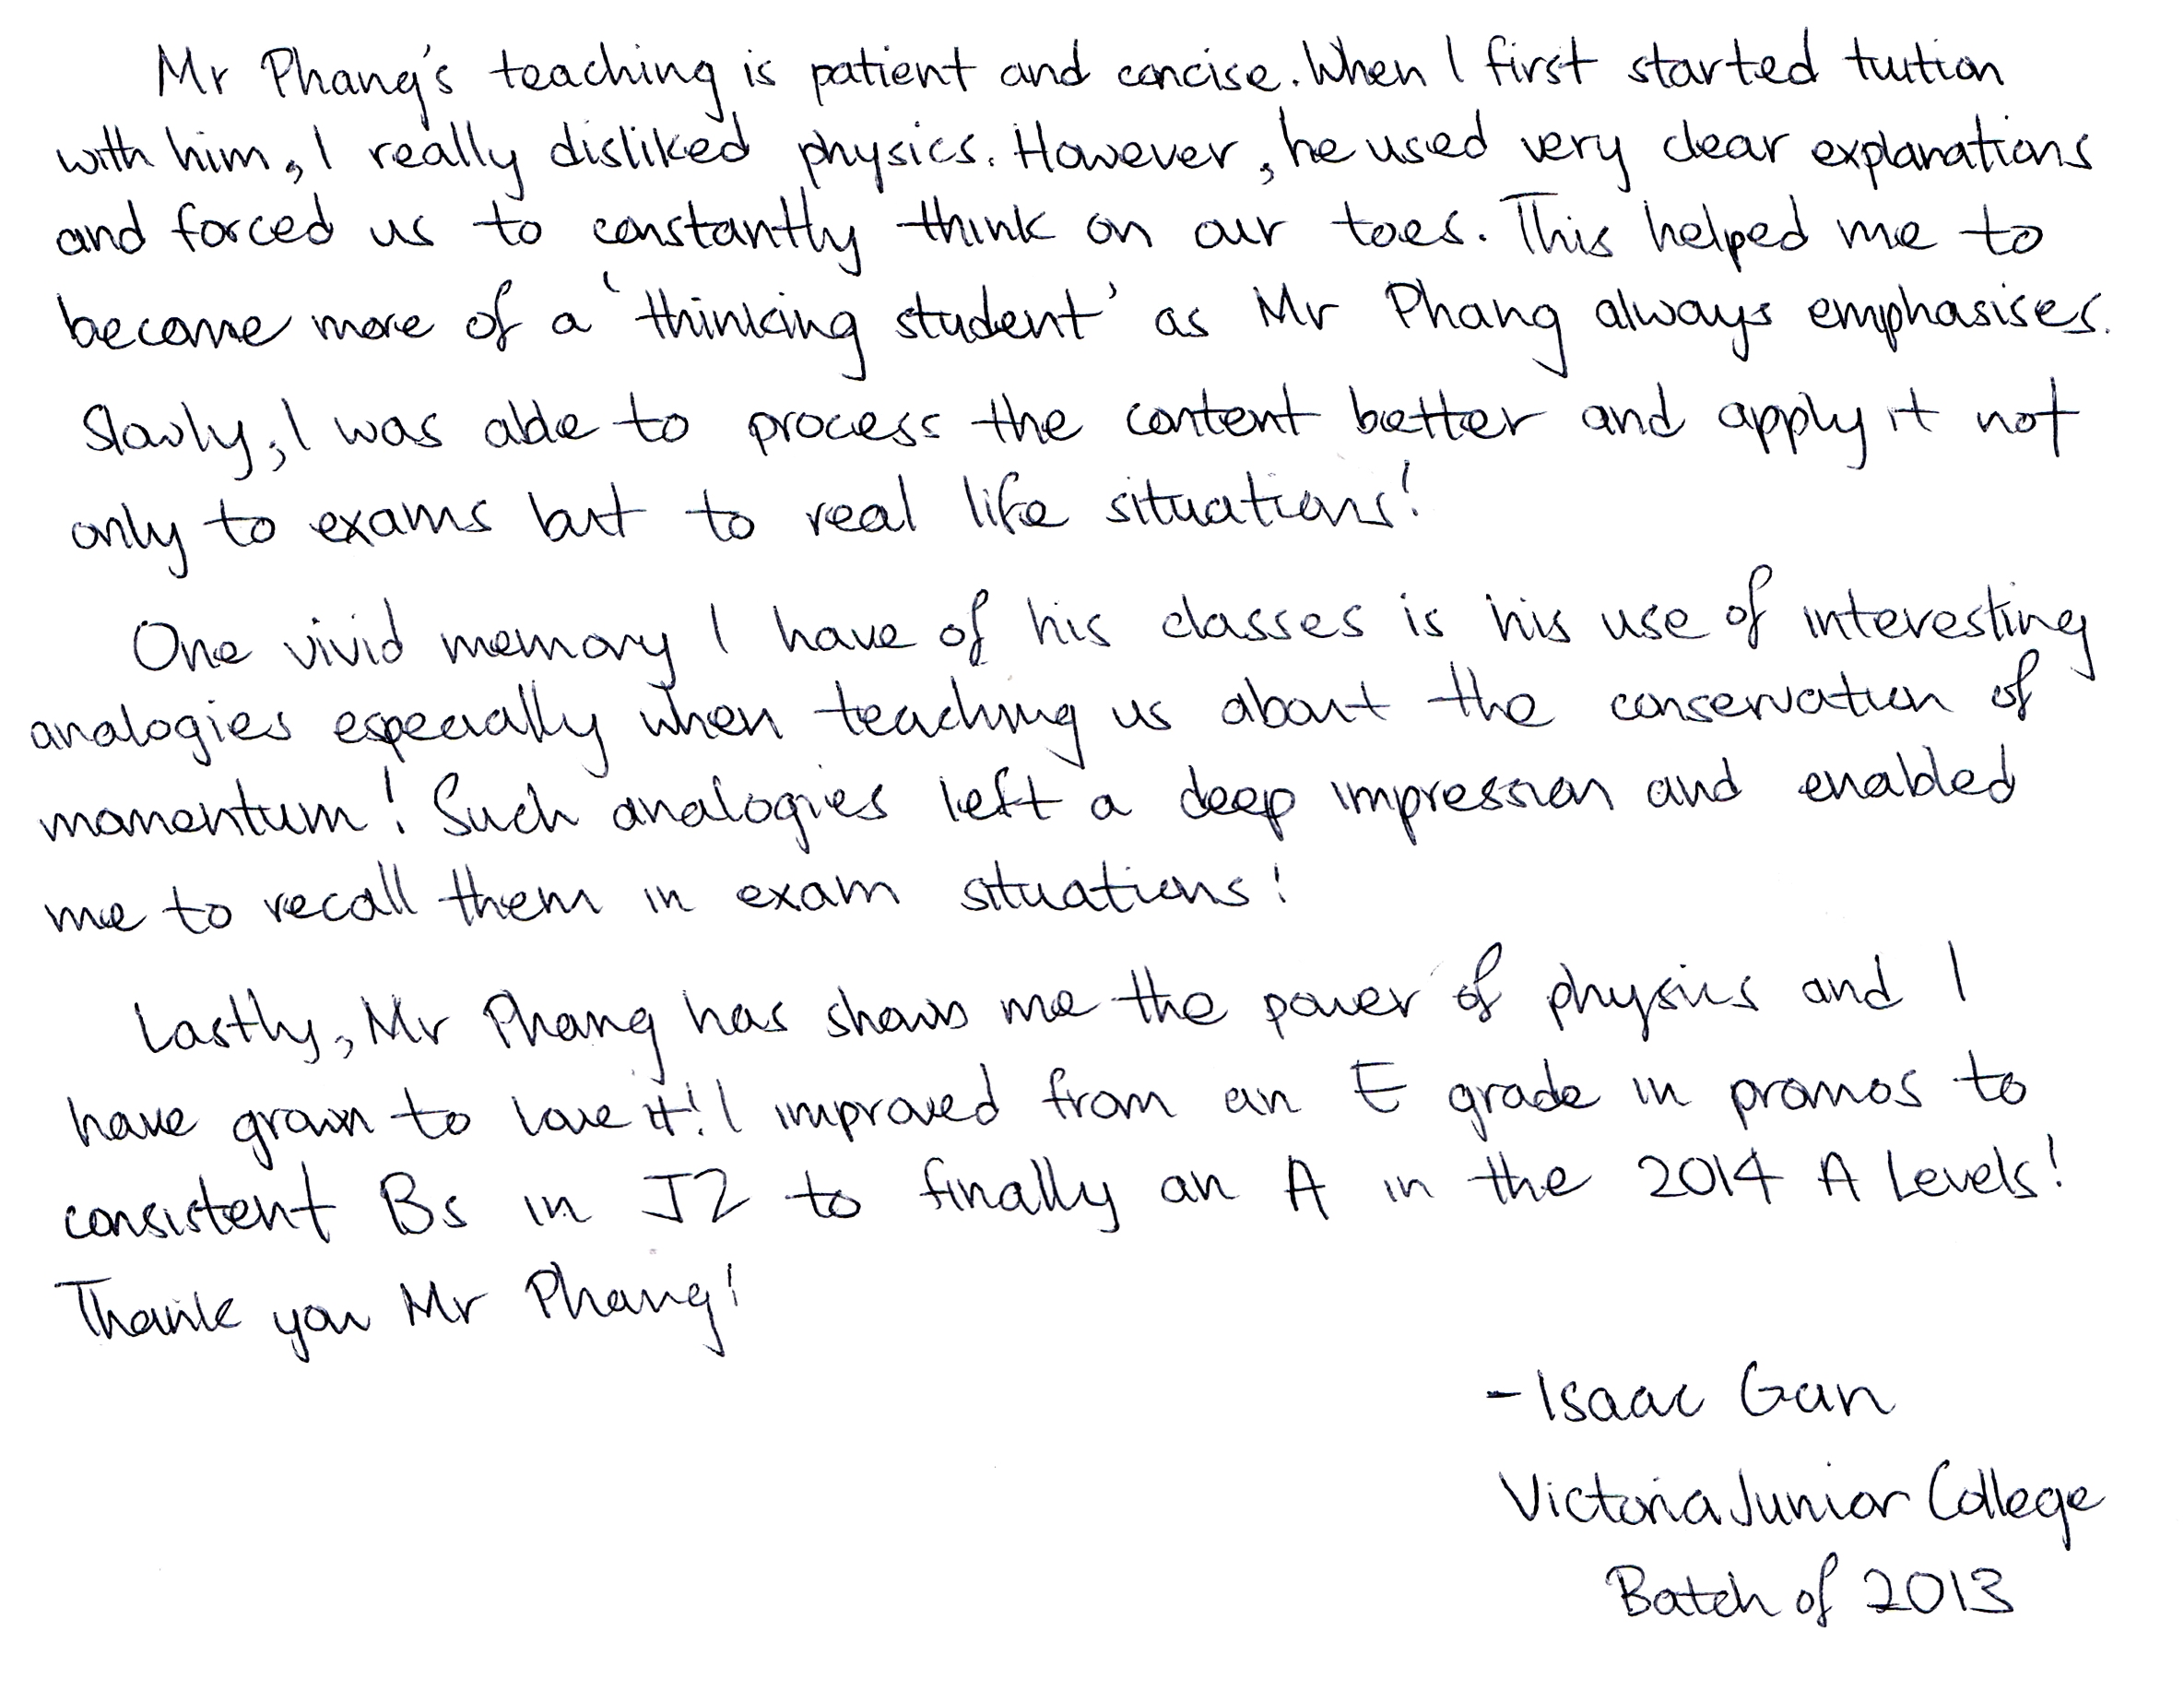 Mr Phang's teaching is patient and concise. When I first started tuition
with him, I really disliked physics. However, he used very clear explanations
and forced us to constantly think on our toes. This helped me to
become more of a 'thinking student' as Mr Phang always emphasises.
Slowly, I was able to process the content better and apply it not
only to exams but to real life situations!
One vivid memory I have of his classes is his use of interesting
analogies especially when teaching us about the conservation of
momentum! Such analogies left a deep impression and enabled
me to recall them in exam situations!
Lastly, Mr Phang has shown me the power of physics and I
have grown to love it! I improved from an E grade in promos to
consistent Bs in J2 to finally an A in the 2014 A Levels!
Thank you Mr Phang!
- Isaac Gan
Victoria Junior College
Batch of 2013